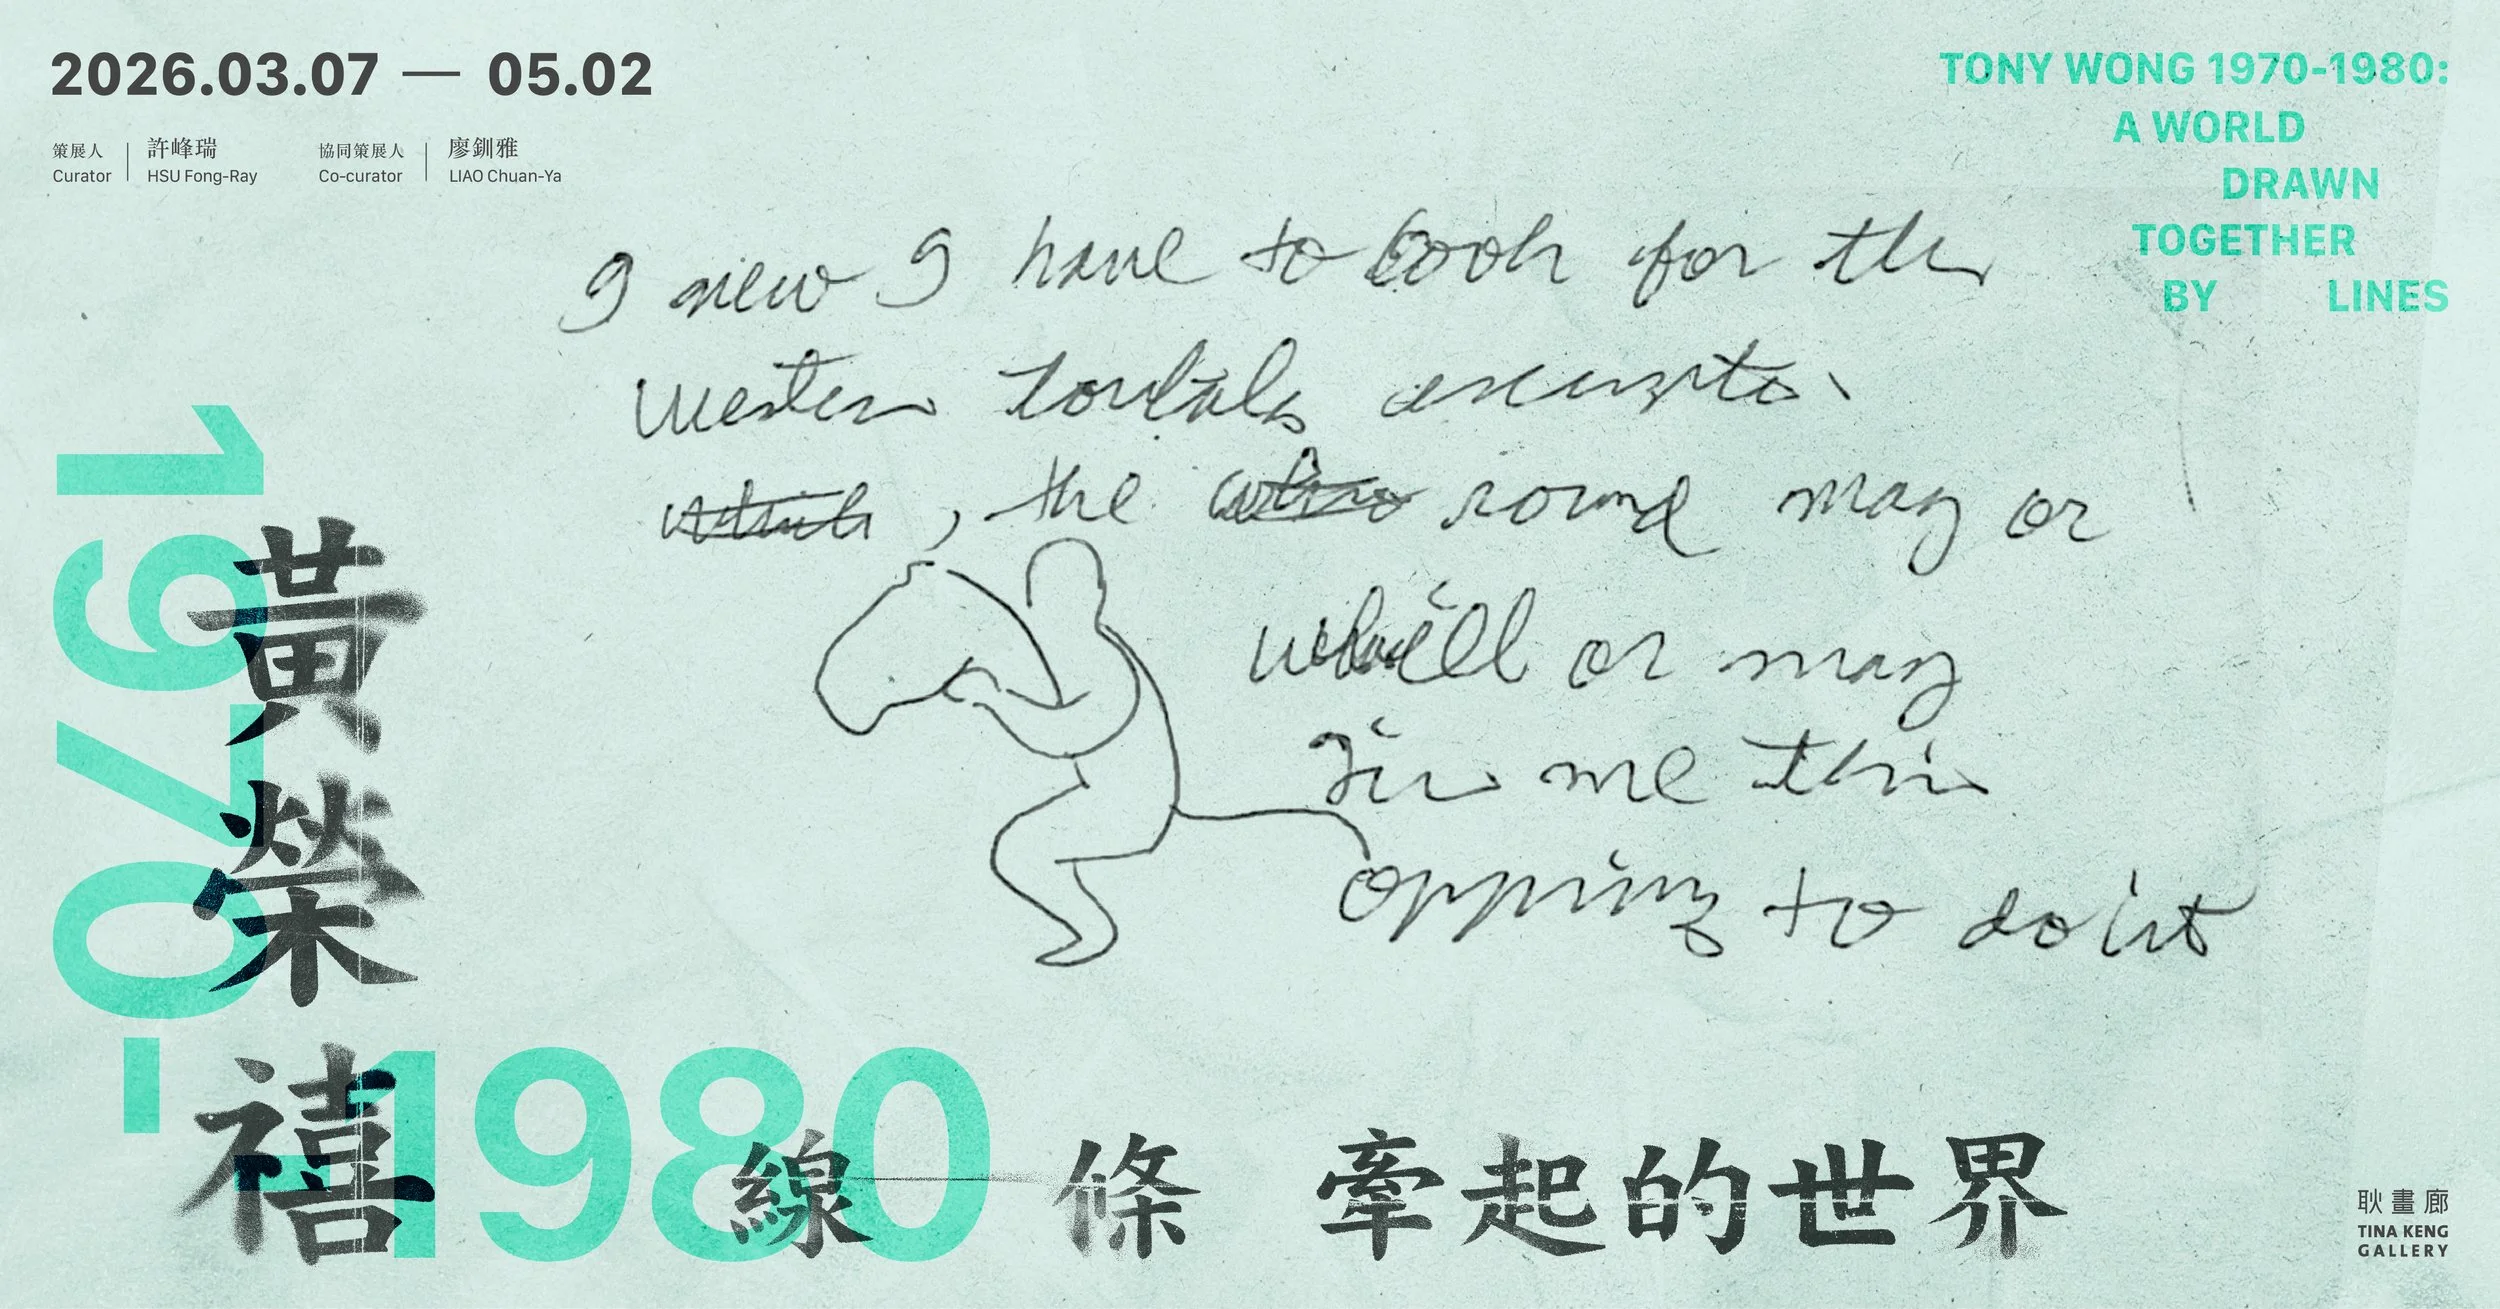 2026.03.07 — 05.02
策展人 許峰瑞 協同策展人 廖釧雅
Curator HSU Fong-Ray Co-curator LIAO Chuan-Ya
TONY WONG 1970-1980:
A WORLD
DRAWN
TOGETHER
BY LINES
I have to look for the
, the round may or
or may
me this
to do it
1970-1980
黃榮禧
線條牽起的世界
耿畫廊
TINA KENG
GALLERY